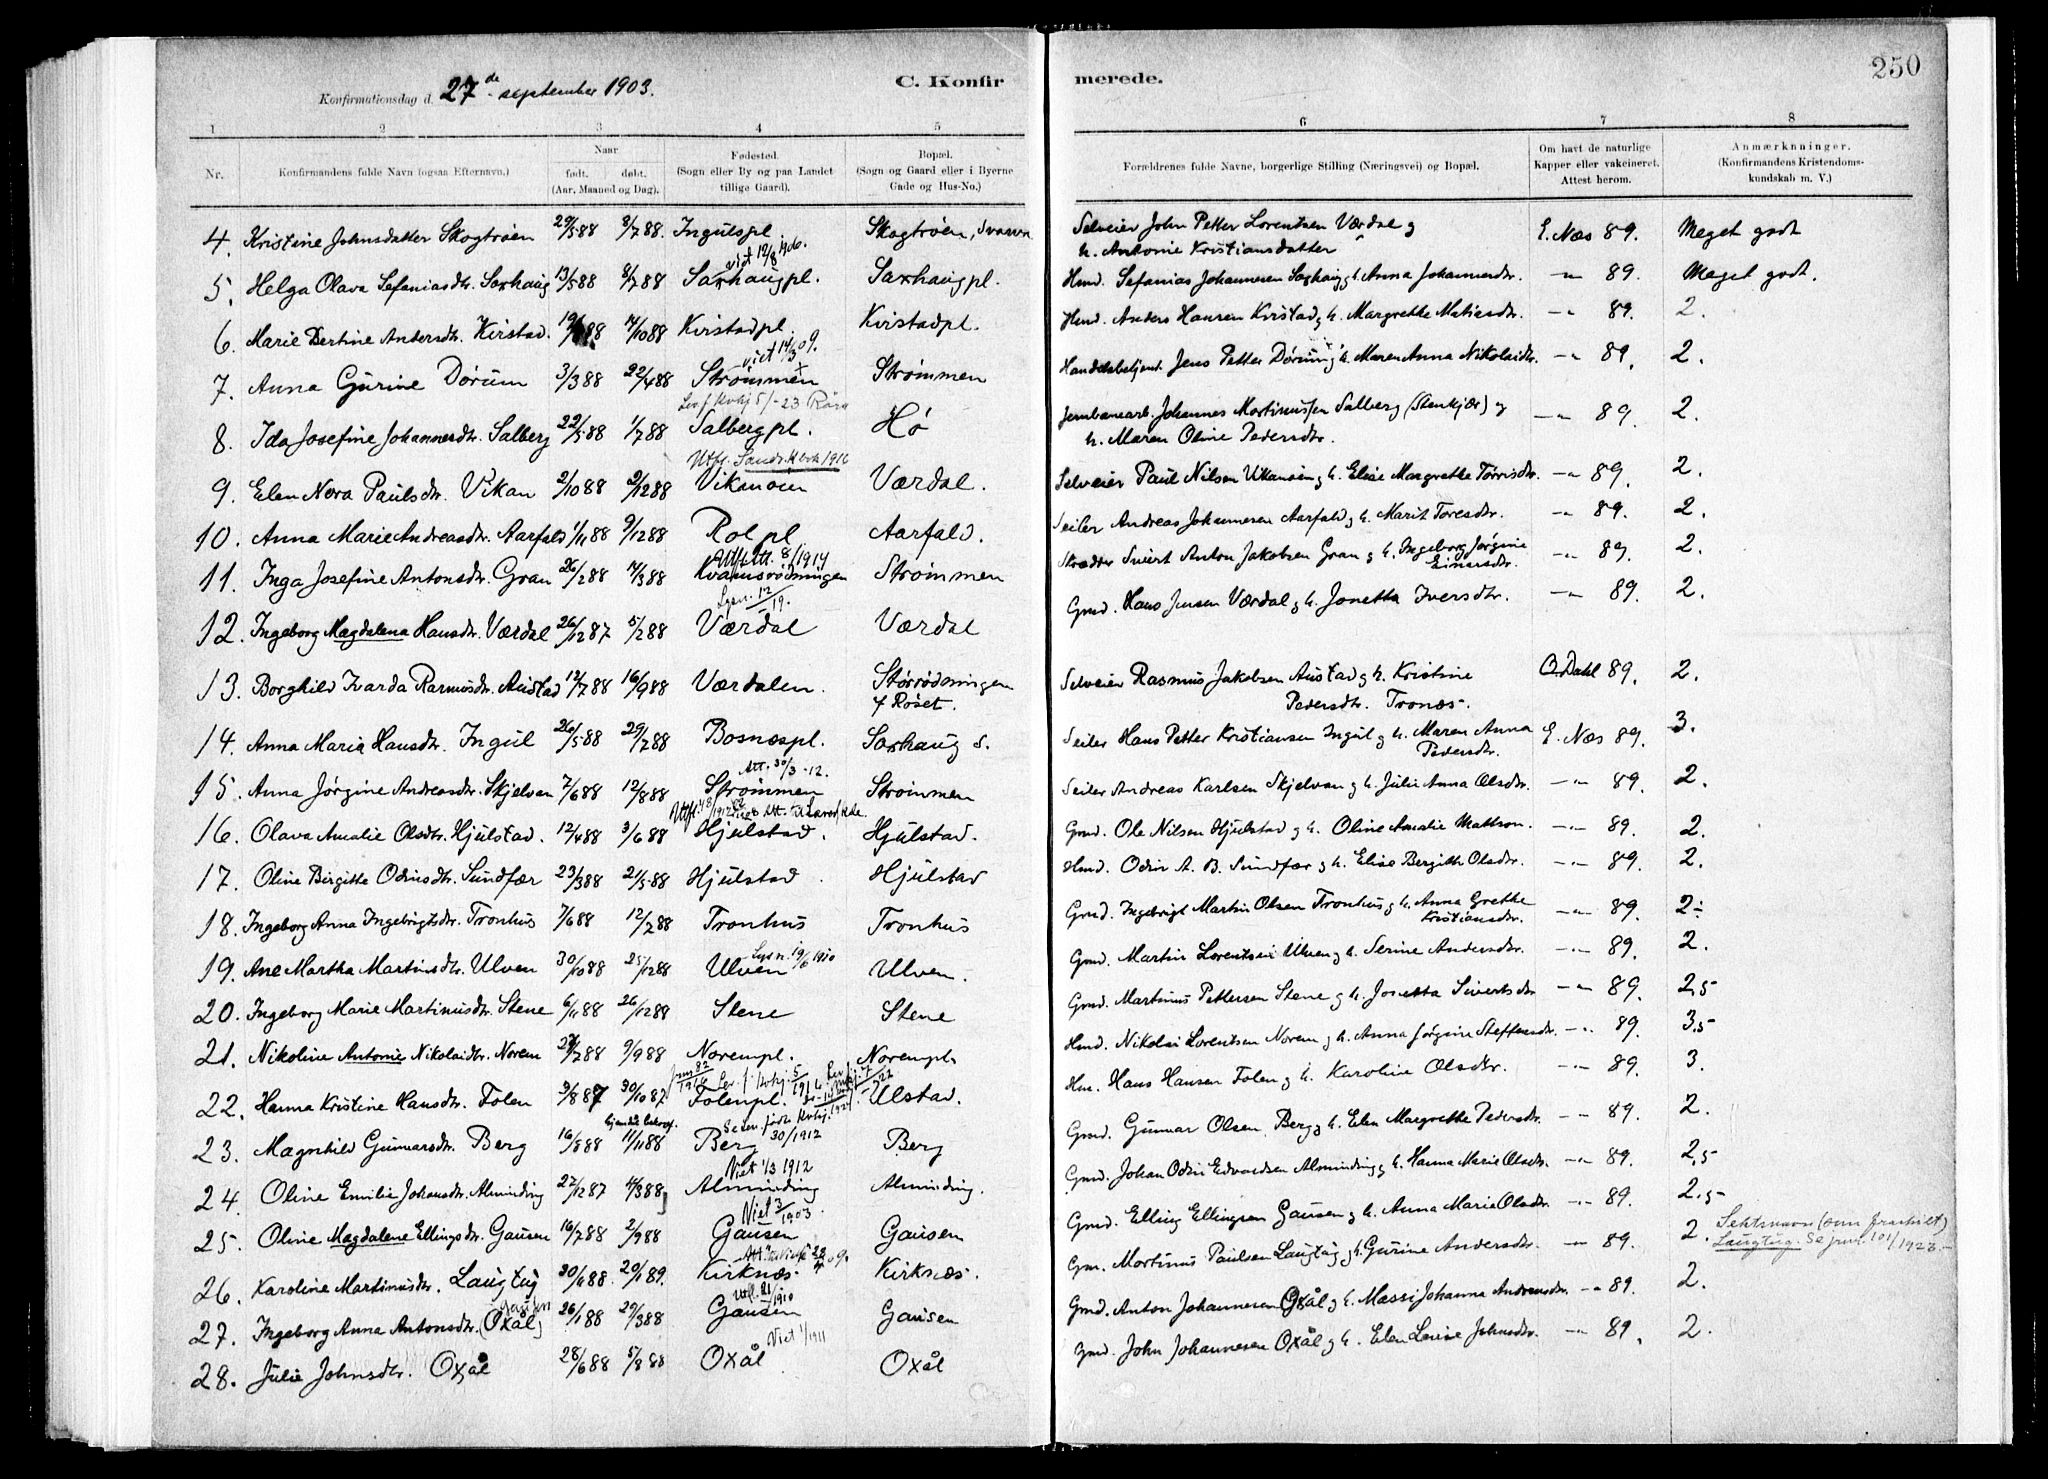 250
C. Konfirmerede.
Konfirmationsdag d. 27de september 1903.
1 2 3 4 5 6 7 8
Nr.
Konfirmandens fulde Navn (ogsaa Efternavn.)
Naar født. døbt. (Aar, Maaned og Dag).
Fødested. (Sogn eller By og paa Landet tillige Gaard).
Bopæl. (Sogn og Gaard eller i Byerne Gade og Hus-No.)
Forældrenes fulde Navne, borgerlige Stilling (Næringsvei) og Bopæl.
Om havt de naturlige Kopper eller vakcineret. Attest herom.
Anmærkninger. (Konfirmandens Kristendomskundskab m. V.)
4. Kristine Johnsdatter Skogtrøen 29/5 88 8/7 88. Ingulspl. Skogtrøen, Selveier John Petter Lorentsen Værdal og h. Antonie Kristiansdatter E. Næs 89. Meget godt
viet 12/8 1906.
5. Helga Olava Sefaniasdtr. Saxhaug 13/5 88 8/7 88 Saxhaugpl. Saxhaugpl. Hmd. Sefanias Johannesen Saxhaug og h. Anna Johannesdtr. —"— 89. Meget godt.
6. Marie Bertine Andersdtr. Kvistad. 88 14/10 88 Kvistadpl. Kvistadpl. Hmd. Anders Hansen Kvistad og h. Margrethe Matiasdtr. —"— 89. 2.
viet 14/3 09.
7. Anna Gurine Dørum 3/3 88 22/4 88 Strømmen Strømmen Handelsbetjent Jens Petter Dørum og h. Maren Anna Nikolaidtr. —"— 89. 2.
Lev. f. Kvhj 5/-23 Röra
8. Ida Josefine Johannesdtr. Salberg 22/5 88 1/7 88 Salbergpl. Hø Jernbanearb. Johannes Martinussen Salberg (Stenkjær) og h. Maren Oline Pedersdtr. —"— 89. 2.
Utfl. 1916
9. Elen Nora Paulsdtr. Vikan 2/10 88 2/12 88 Vikanøien Værdal. Selveier Paul Nilsen Vikanøien og h. Elise Margrethe Tørrisdtr. —"— 89. 2.
10. Anna Marie Andreasdtr. Aarfald 1/11 88 9/12 88 Rolpl Aarfald. Seiler Andreas Johannesen Aarfald og h. Marit Toresdtr. —"— 89. 2.
Utfl. Att. 8/1914
11. Inga Josefine Antonsdtr. Gran 26/2 88 4/3 88 Kvamsrødningen Strømmen Skrædder Sivert Anton Jakobsen Gran og h. Ingeborg Jørgine Einarsdtr. —"— 89. 2.
Lysn. 12/-19.
12. Ingeborg Magdalena Hansdtr. Værdal 26/12 87 5/2 88 Værdal Værdal Gmd. Hans Jensen Værdal og h. Jonetta Iversdtr. —"— 89. 2.
13. Borghild Ivarda Rasmusdtr. Austad 12/7 88 16/9 88 Værdalen. Størrødningen f Røset. Selveier Rasmus Jakobsen Austad og h. Kristine Pedersdtr. Tronæs. O. Dahl 89. 2.
14. Anna Maria Hansdtr. Ingul 26/5 88 29/7 88 Bosnæspl. Saxhaug s. Seiler Hans Petter Kristiansen Ingul og h. Maren Anna Pedersdtr. E. Næs 89. 3.
Att. 30/3-12.
15. Anna Jørgine Andreasdtr. Skjelvan 7/6 88 12/8 88 Strømmen Strømmen Seiler Andreas Karlsen Skjelvan og h. Julie Anna Olsdtr. —"— 89. 2.
16. Olava Amalie Olsdtr. Hjulstad. 12/4 88 3/6 88 Hjulstad. Hjulstad. Gmd. Ole Nilsen Hjulstad og h. Oline Amalie Mattson. —"— 89. 2.
17. Oline Birgitte Odinsdtr. Sundfær 23/3 88 21/5 88 Hjulstad Hjulstad Hmd. Odin A. B. Sundfær og h. Elise Bergitte Olsdtr. —"— 89. 2.
18. Ingeborg Anna Ingebrigtsdtr. Tronhus 7/6 88 12/7 88 Tronhus Tronhus Gmd. Ingebrigt Martin Olsen Tronhus og h. Anna Grethe Kristiansdtr. —"— 89. 2÷
Lysn. 19/6 1910
19. Ane Martha Martinsdtr. Ulven 30/10 88 25/12 88 Ulven Ulven. Gmd. Martin Lorentsen Ulven og h. Serine Andersdtr. —"— 89. 2.
20. Ingeborg Marie Martinusdtr. Stene 6/11 88 26/12 88 Stene Stene Gmd. Martinus Pettersen Stene og h. Jonetta Sivertsdtr —"— 89. 2,5
21. Nikoline Antonie Nikolaidtr. Norem 29/7 88 9/9 88 Norempl. Norempl. Hmd. Nikolai Lorentsen Norem og h. Anna Jørgine Steffensdtr. —"— 89. 3,5
22. Hanna Kristine Hansdtr. Folen 3/8 87 30/10 87 Folenpl. Ulstad. Hm. Hans Hansen Folen og h. Karoline Olsdtr. —"— 89. 3.
23. Magnhild Gunnarsdtr. Berg 16/8 88 11/11 88 Berg Berg Gmd. Gunnar Olsen Berg og h. Elen Margrethe Pedersdtr. —"— 89. 2.
Viet 1/3 1912
24. Oline Emilie Johansdtr. Alminding 27/12 87 4/3 88 Alminding Alminding. Gmd. Johan Odin Edvardsen Alminding og h. Hanna Marie Olsdtr. —"— 89. 2,5
Viet 3/1903.
25. Oline Magdalene Ellingsdtr. Gausen 16/7 88 2/9 88 Gausen Gausen Gmd. Elling Ellingsen Gausen og h. Anna Maria Olsdtr. —"— 89. 2,5
26. Karoline Martinusdtr. Laugtug 30/11 88. 20/1 89. Kirknæs. Kirknæs. Gm. Martinus Paulsen Laugtug og h. Gurine Andersdtr. —"— 89. 2. Slektsnavn (som fraskilt) Laugtug. Se jnr. 101/1923.
Utfl. 21/1910
27. Ingeborg Anna Antonsdtr. (Oxål) Gausen 26/1 88 29/3 88 Gausen Gausen Gmd. Anton Johannesen Oxål og h. Massi Johanna Andreasdtr. —"— 89. 2.
Viet 1/1911
28. Julie Johnsdtr. Oxål 28/6 88 5/8 88 Oxål Oxål Gmd. John Johannesen Oxål og h. Elen Lovise Johnsdtr. —"— 89. 2.